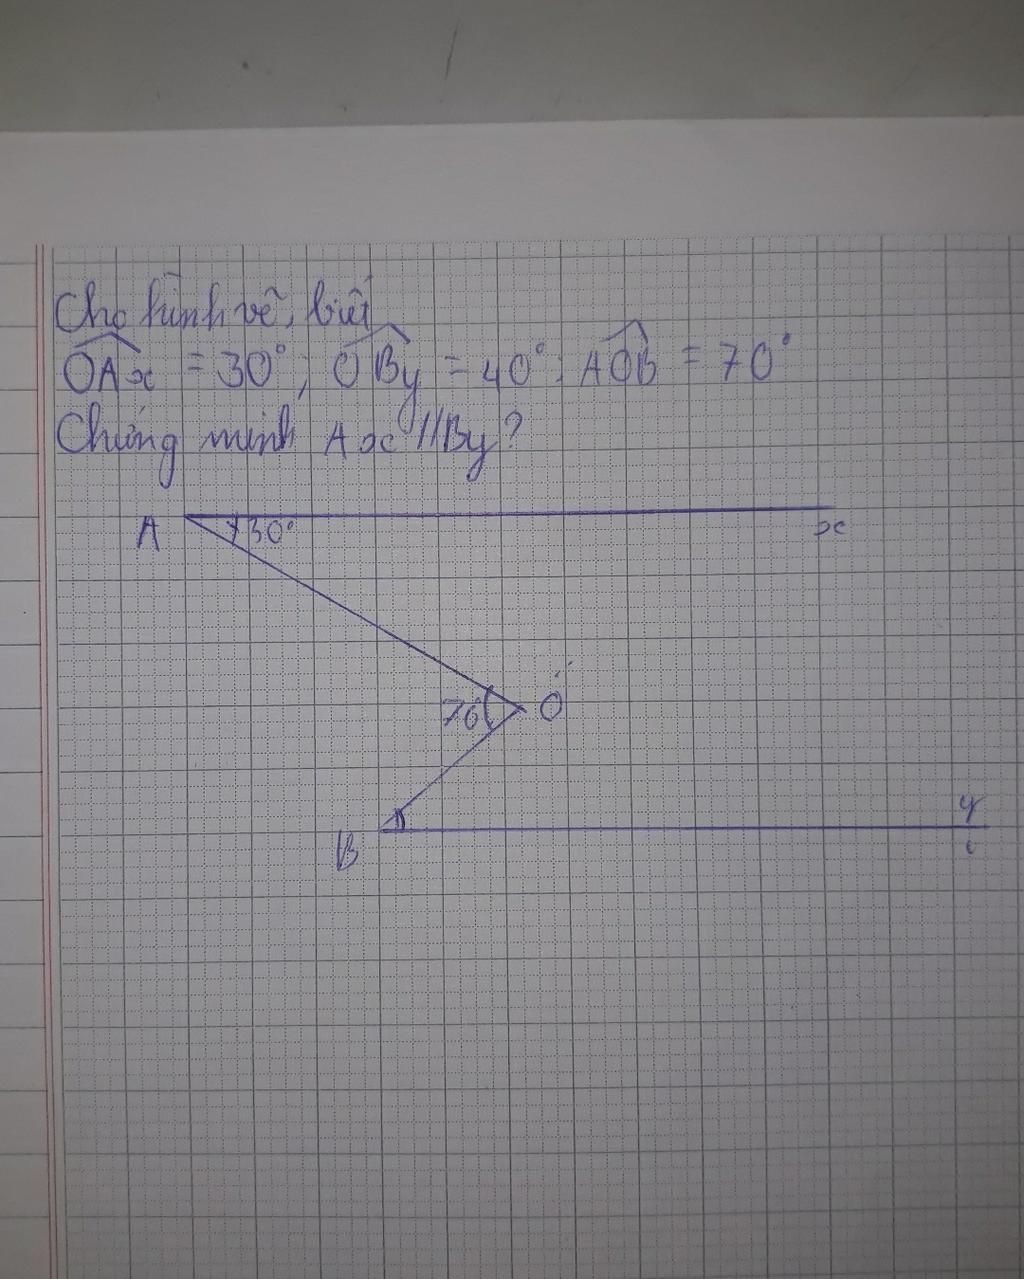 Cho hình vẽ, biết
OAx = 30°; OBy = 40°; AOB = 70°
Chứng minh Ax // By?
A 30° x
70 O
y
B